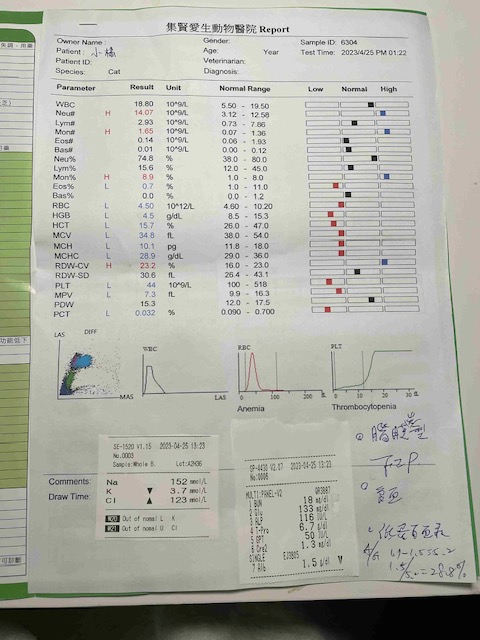 集賢愛生動物醫院 Report
Owner Name: Gender: Sample ID: 6304
Patient: 小橘 Age: Year Test Time: 2023/4/25 PM 01:22
Patient ID: Veterinarian:
Species: Cat Diagnosis:
Parameter Result Unit Normal Range Low Normal High
WBC 18.80 10^9/L 5.50 - 19.50
Neu# H 14.07 10^9/L 3.12 - 12.58
Lym# 2.93 10^9/L 0.73 - 7.86
Mon# H 1.65 10^9/L 0.07 - 1.36
Eos# 0.14 10^9/L 0.06 - 1.93
Bas# 0.01 10^9/L 0.00 - 0.12
Neu% 74.8 % 38.0 - 80.0
Lym% 15.6 % 12.0 - 45.0
Mon% H 8.9 % 1.0 - 8.0
Eos% L 0.7 % 1.0 - 11.0
Bas% 0.0 % 0.0 - 1.2
RBC L 4.50 10^12/L 4.60 - 10.20
HGB L 4.5 g/dL 8.5 - 15.3
HCT L 15.7 % 26.0 - 47.0
MCV L 34.8 fL 38.0 - 54.0
MCH L 10.1 pg 11.8 - 18.0
MCHC L 28.9 g/dL 29.0 - 36.0
RDW-CV H 23.2 % 16.0 - 23.0
RDW-SD 30.6 fL 26.4 - 43.1
PLT L 44 10^9/L 100 - 518
MPV L 7.3 fL 9.9 - 16.3
PDW 15.3 12.0 - 17.5
PCT L 0.032 % 0.090 - 0.700
LAS DIFF
MAS
WBC
LAS
RBC
200
Anemia
PLT
30
Thrombocytopenia
SE-1520 V1.15 2023-04-25 13:23
No.0003
Sample:Whole B. Lot:A2H36
Comments:
Draw Time:
Na 152 mmol/L
K ▼ 3.7 mmol/L
Cl ▲ 123 mmol/L
M20 Out of normal L K
M21 Out of normal U Cl
SP-4430 V2.07 2023-04-25 13:23
No.0006
MULTI PANEL-V2
1 BUN 18 mg/dl
2 Glu 133 mg/dl
3 ALP 116 IU/L
4 T-Pro 6.7 g/dl
5 GPT 50 IU/L
6 Cre2 1.3 mg/dl
SINGLE
7 Alb 1.5 g/dl ▼
FIP